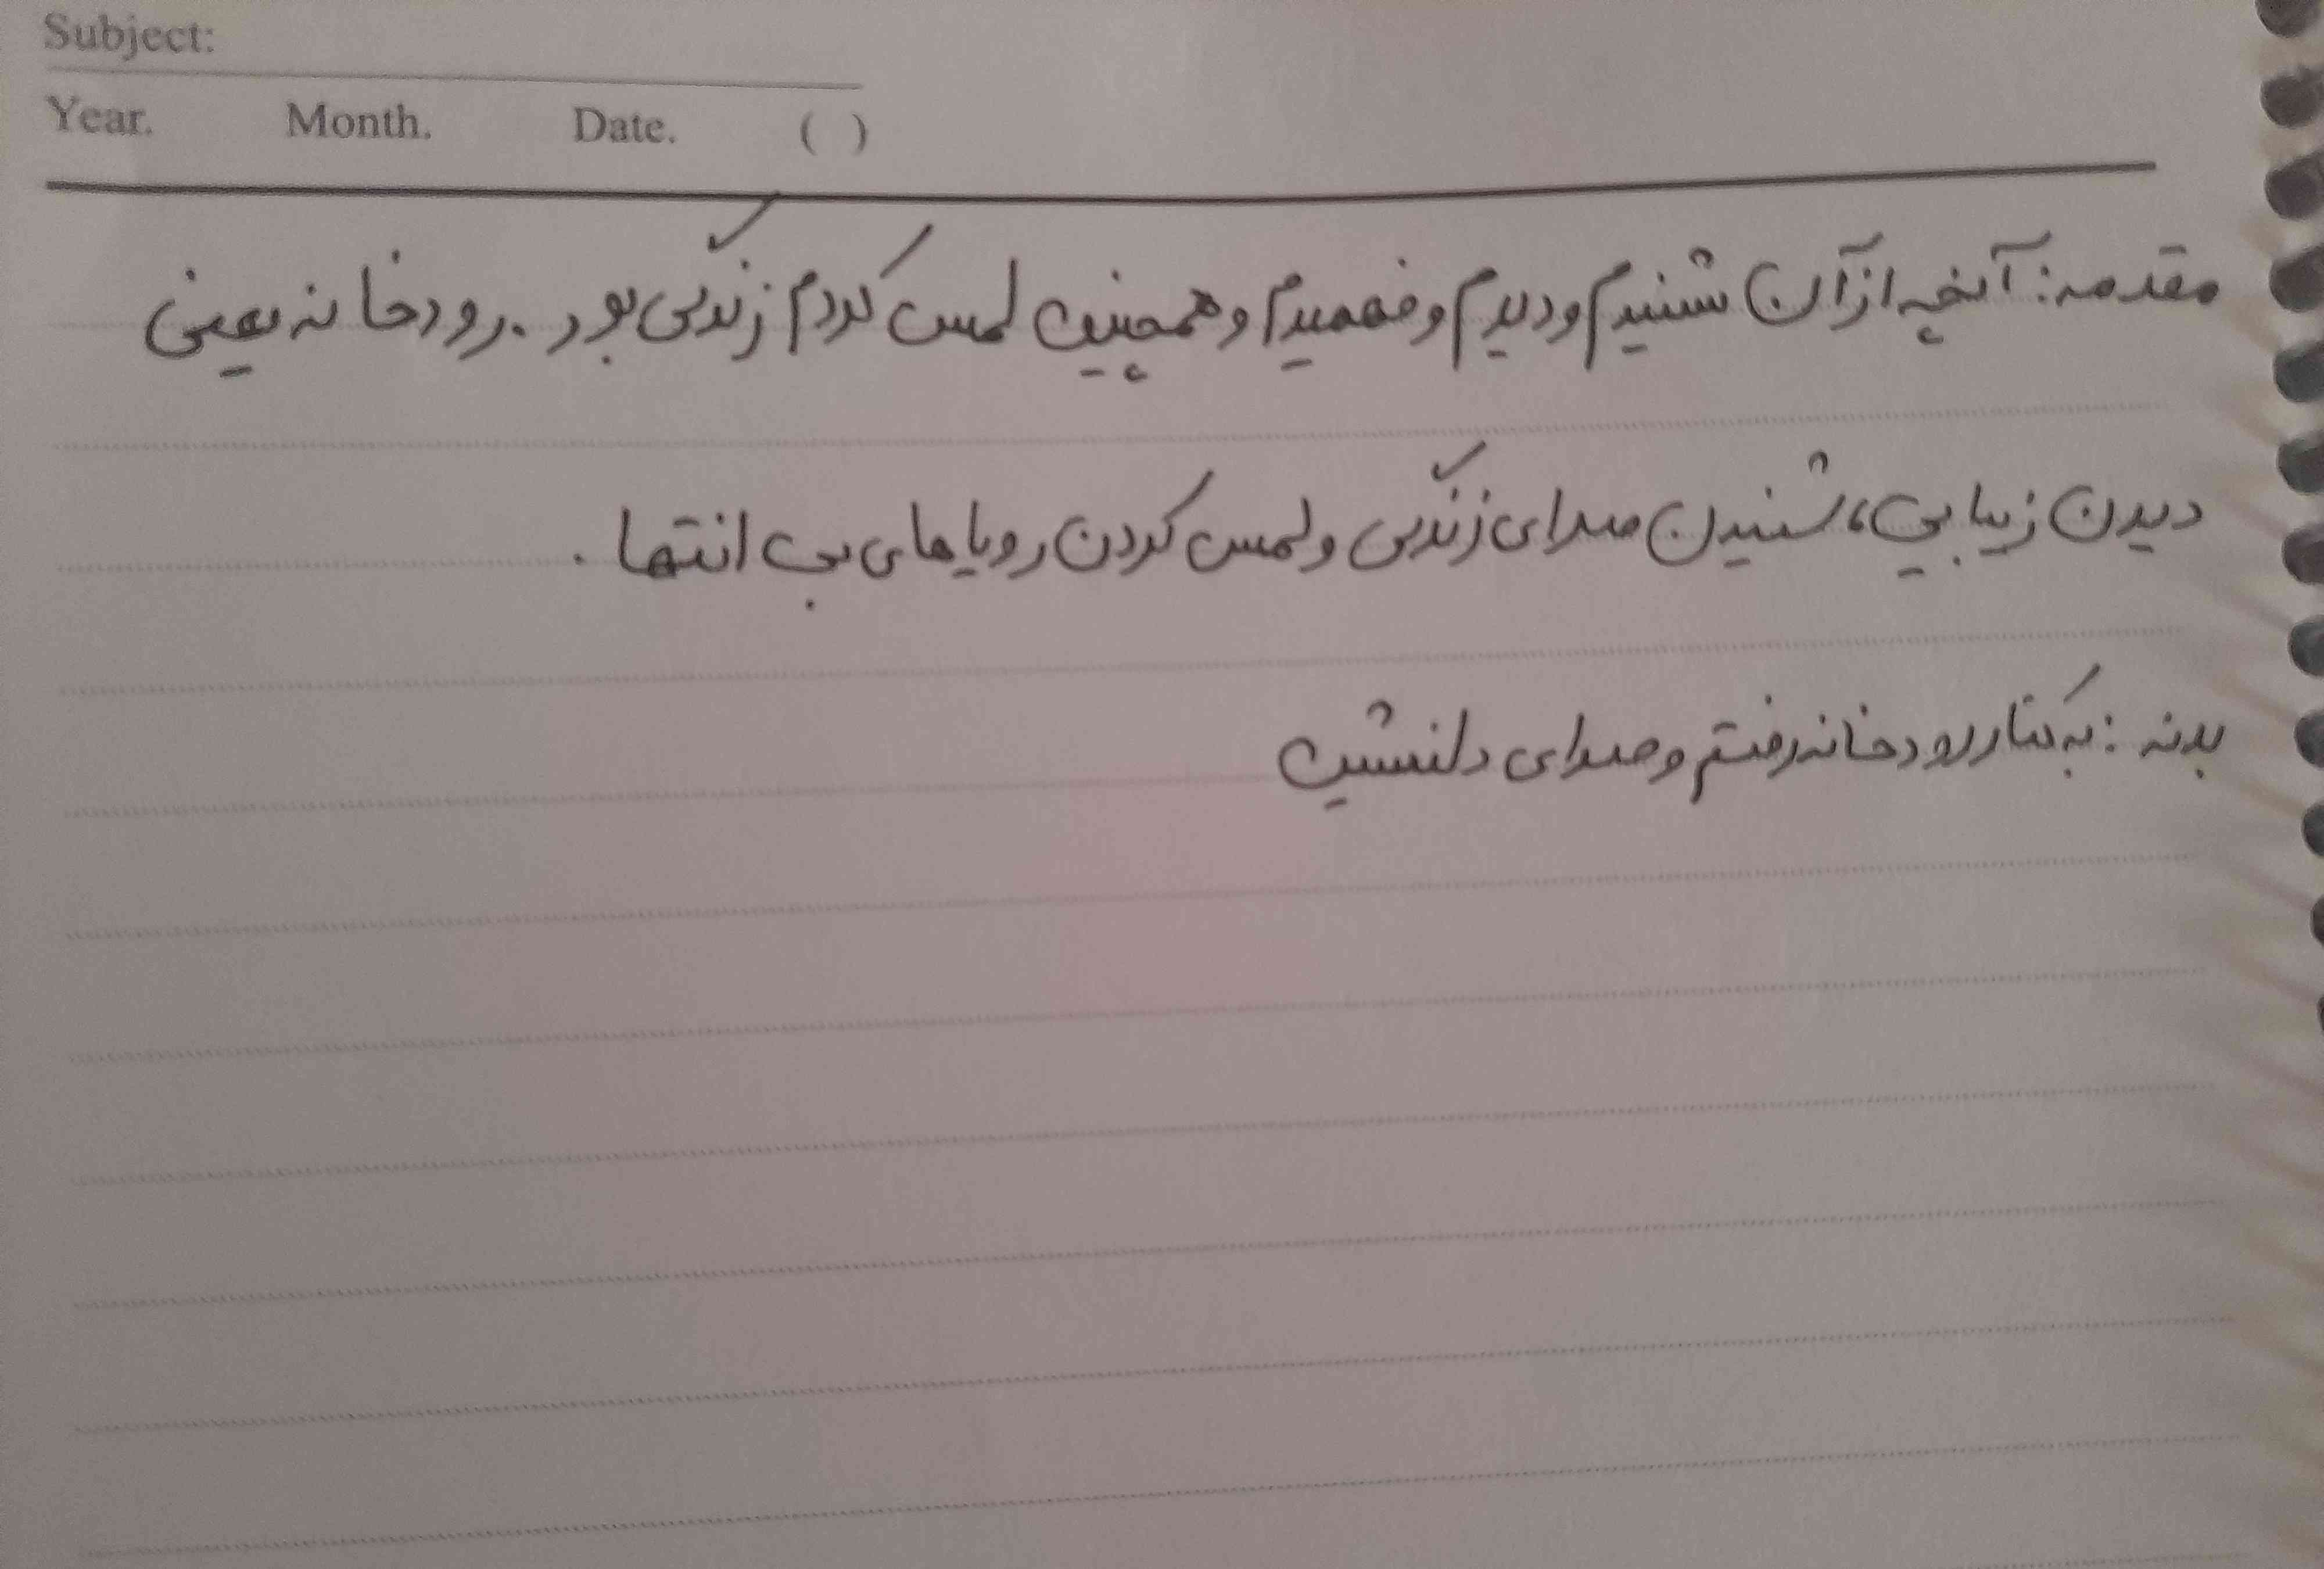 Subject:
Year. Month. Date. ( )
مقدمه: آنچه از آن شنیدم و دیدم و فهمیدم و همچنین لمس کردم زندگی بود. رودخانه یعنی
دیدن زیبایی، شنیدن صدای زندگی و لمس کردن رویاهای بی انتها.
بدنه: به کنار رودخانه رفتم و صدای دلنشین